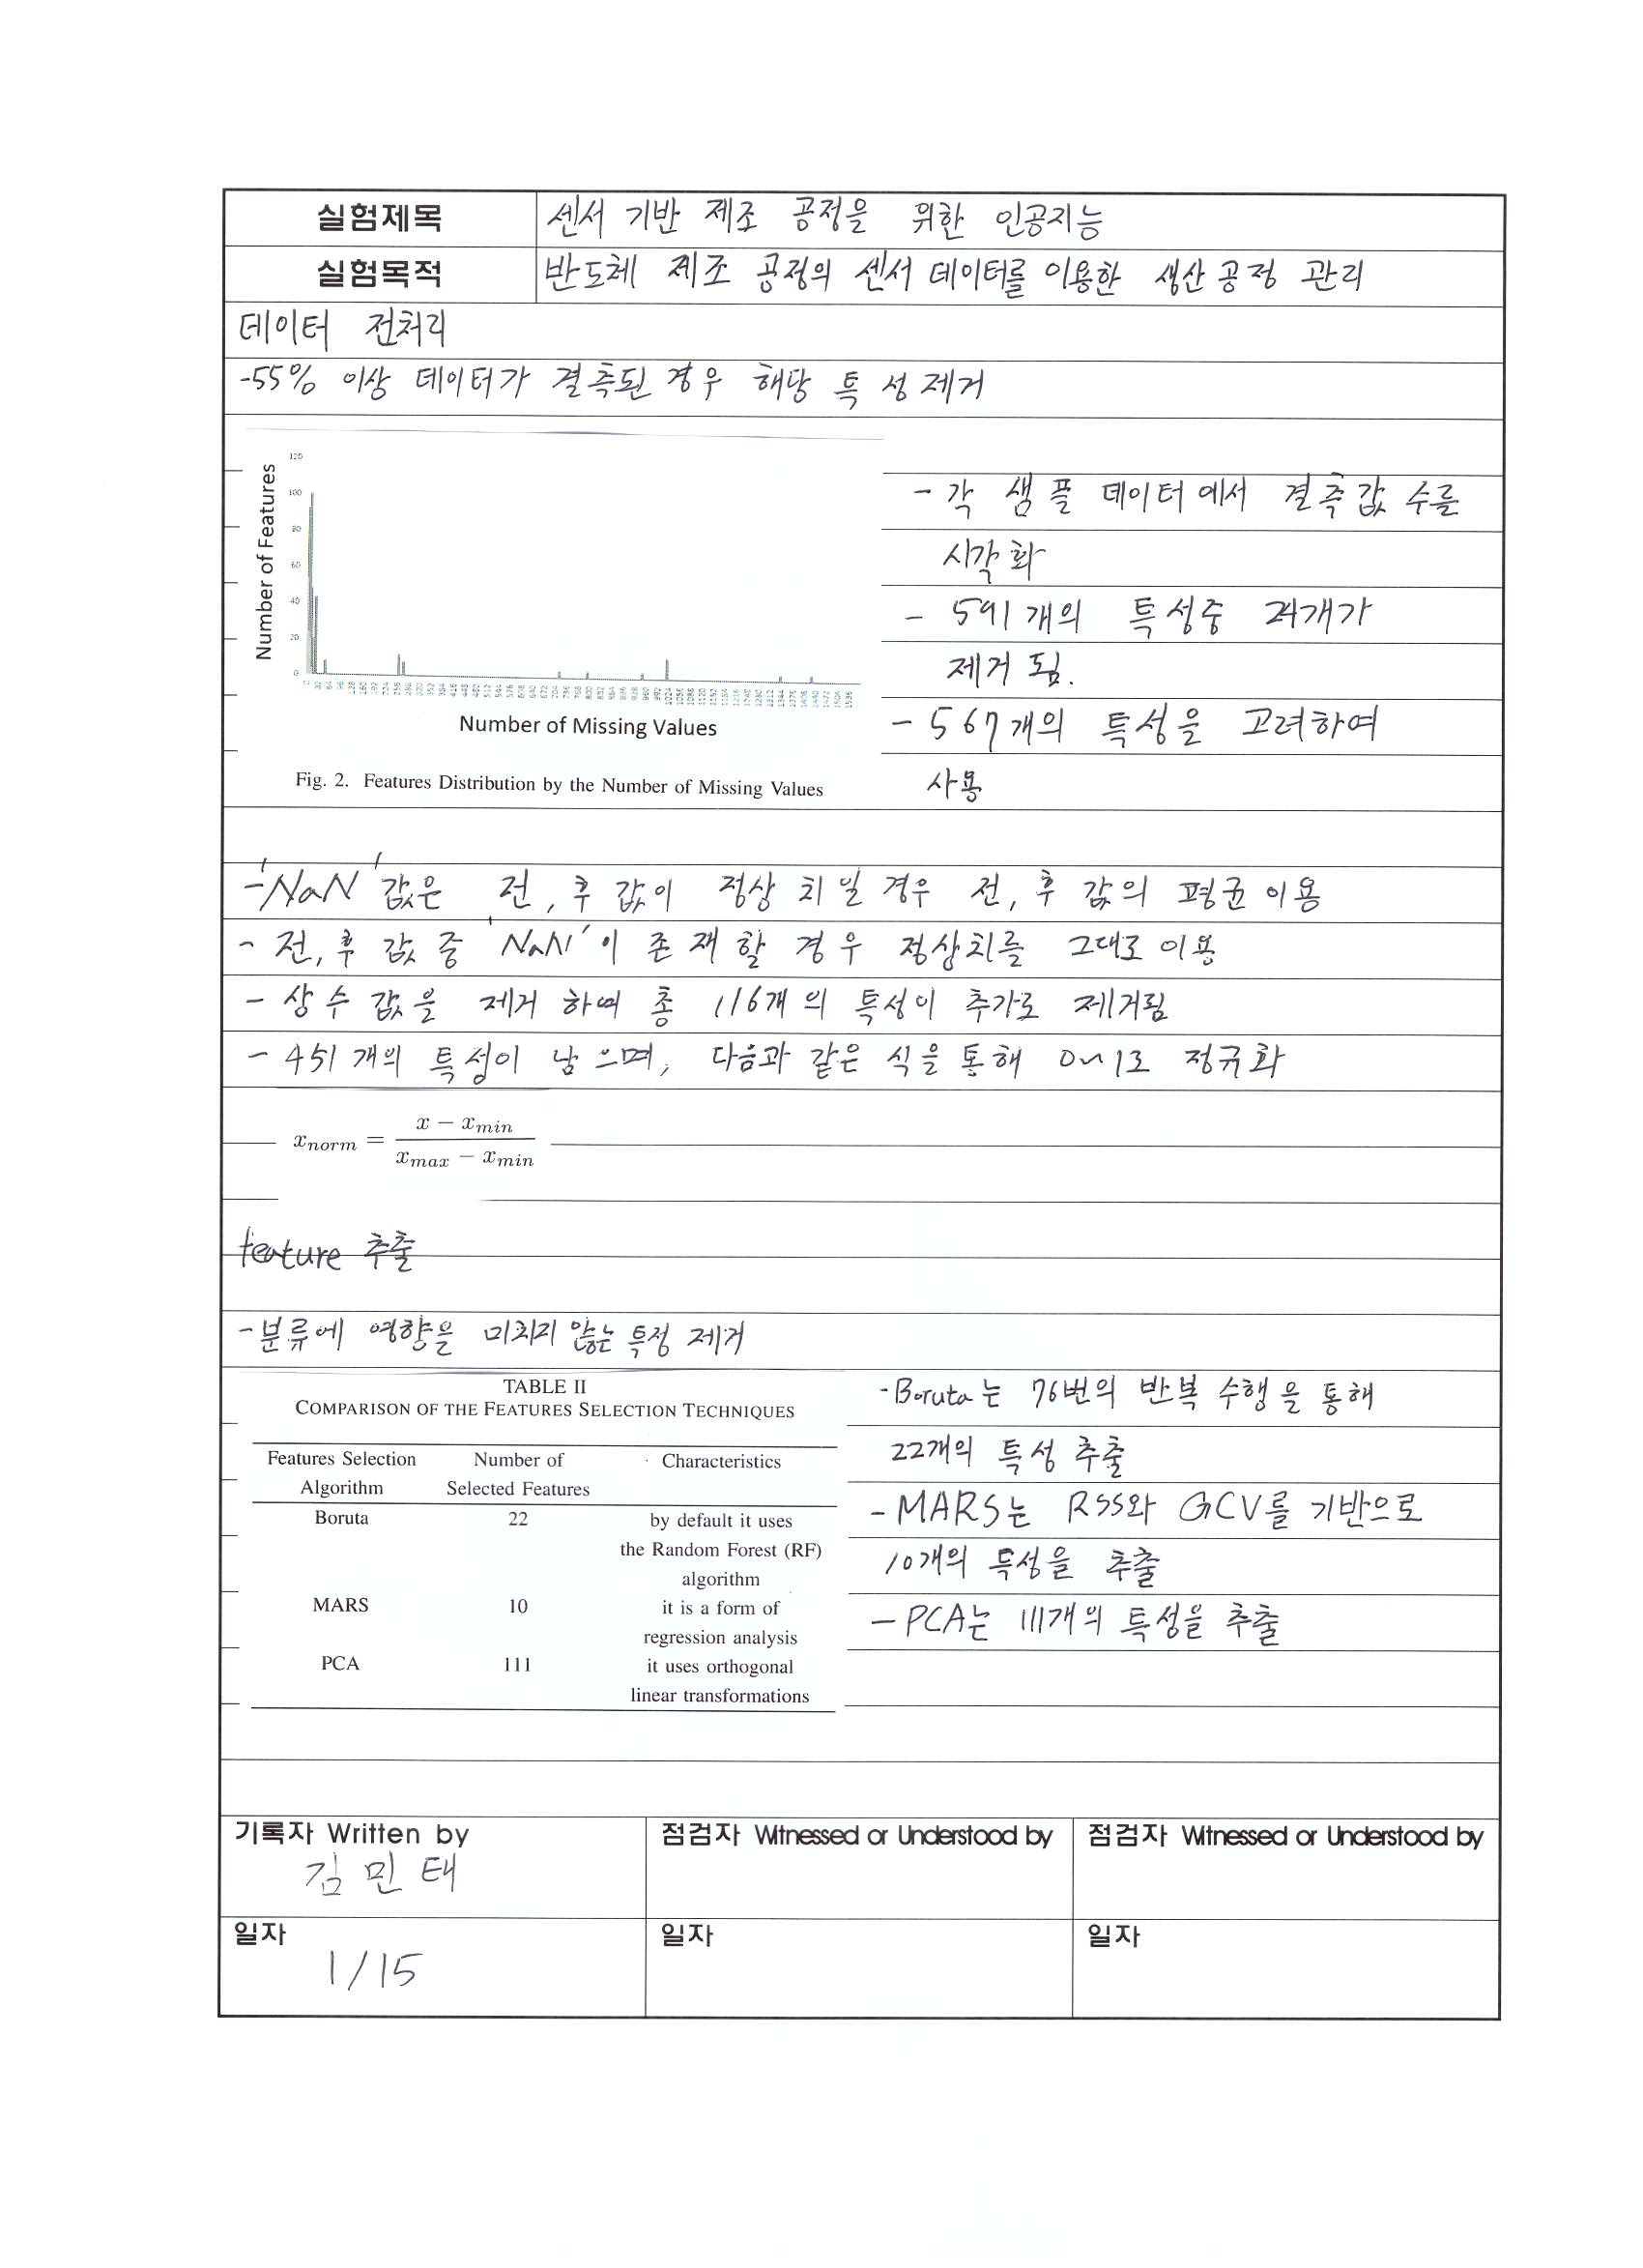 실험제목 센서 기반 제조 공정을 위한 인공지능
실험목적 반도체 제조 공정의 센서 데이터를 이용한 생산 공정 관리
데이터 전처리
-55% 이상 데이터가 결측된 경우 해당 특성 제거
Number of Features
120
100
80
60
40
20
0
Number of Missing Values
Fig. 2. Features Distribution by the Number of Missing Values
- 각 샘플 데이터에서 결측값 수를
시각화
- 591개의 특성중 24개가
제거 됨.
- 567개의 특성을 고려하여
사용
- 'NaN' 값은 전, 후 값이 정상치일 경우 전, 후 값의 평균 이용
- 전, 후 값 중 'NaN'이 존재할 경우 정상치를 그대로 이용
- 상수 값을 제거 하여 총 116개의 특성이 추가로 제거됨
- 451개의 특성이 남으며, 다음과 같은 식을 통해 0~1로 정규화
x_norm = (x - x_min) / (x_max - x_min)
feature 추출
-분류에 영향을 미치지 않는 특정 제거
TABLE II
COMPARISON OF THE FEATURES SELECTION TECHNIQUES
Features Selection Number of Characteristics
Algorithm Selected Features
Boruta 22 by default it uses
the Random Forest (RF)
algorithm
MARS 10 it is a form of
regression analysis
PCA 111 it uses orthogonal
linear transformations
-Boruta는 76번의 반복 수행을 통해
22개의 특성 추출
- MARS는 RSS와 GCV를 기반으로
10개의 특성을 추출
- PCA는 111개의 특성을 추출
기록자 Written by
김민태
점검자 Witnessed or Understood by
점검자 Witnessed or Understood by
일자
1/15
일자
일자